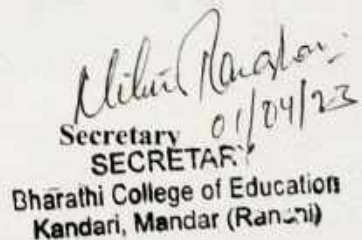 01/04/23
Secretary
SECRETARY
Bharathi College of Education
Kandari, Mandar (Ranchi)